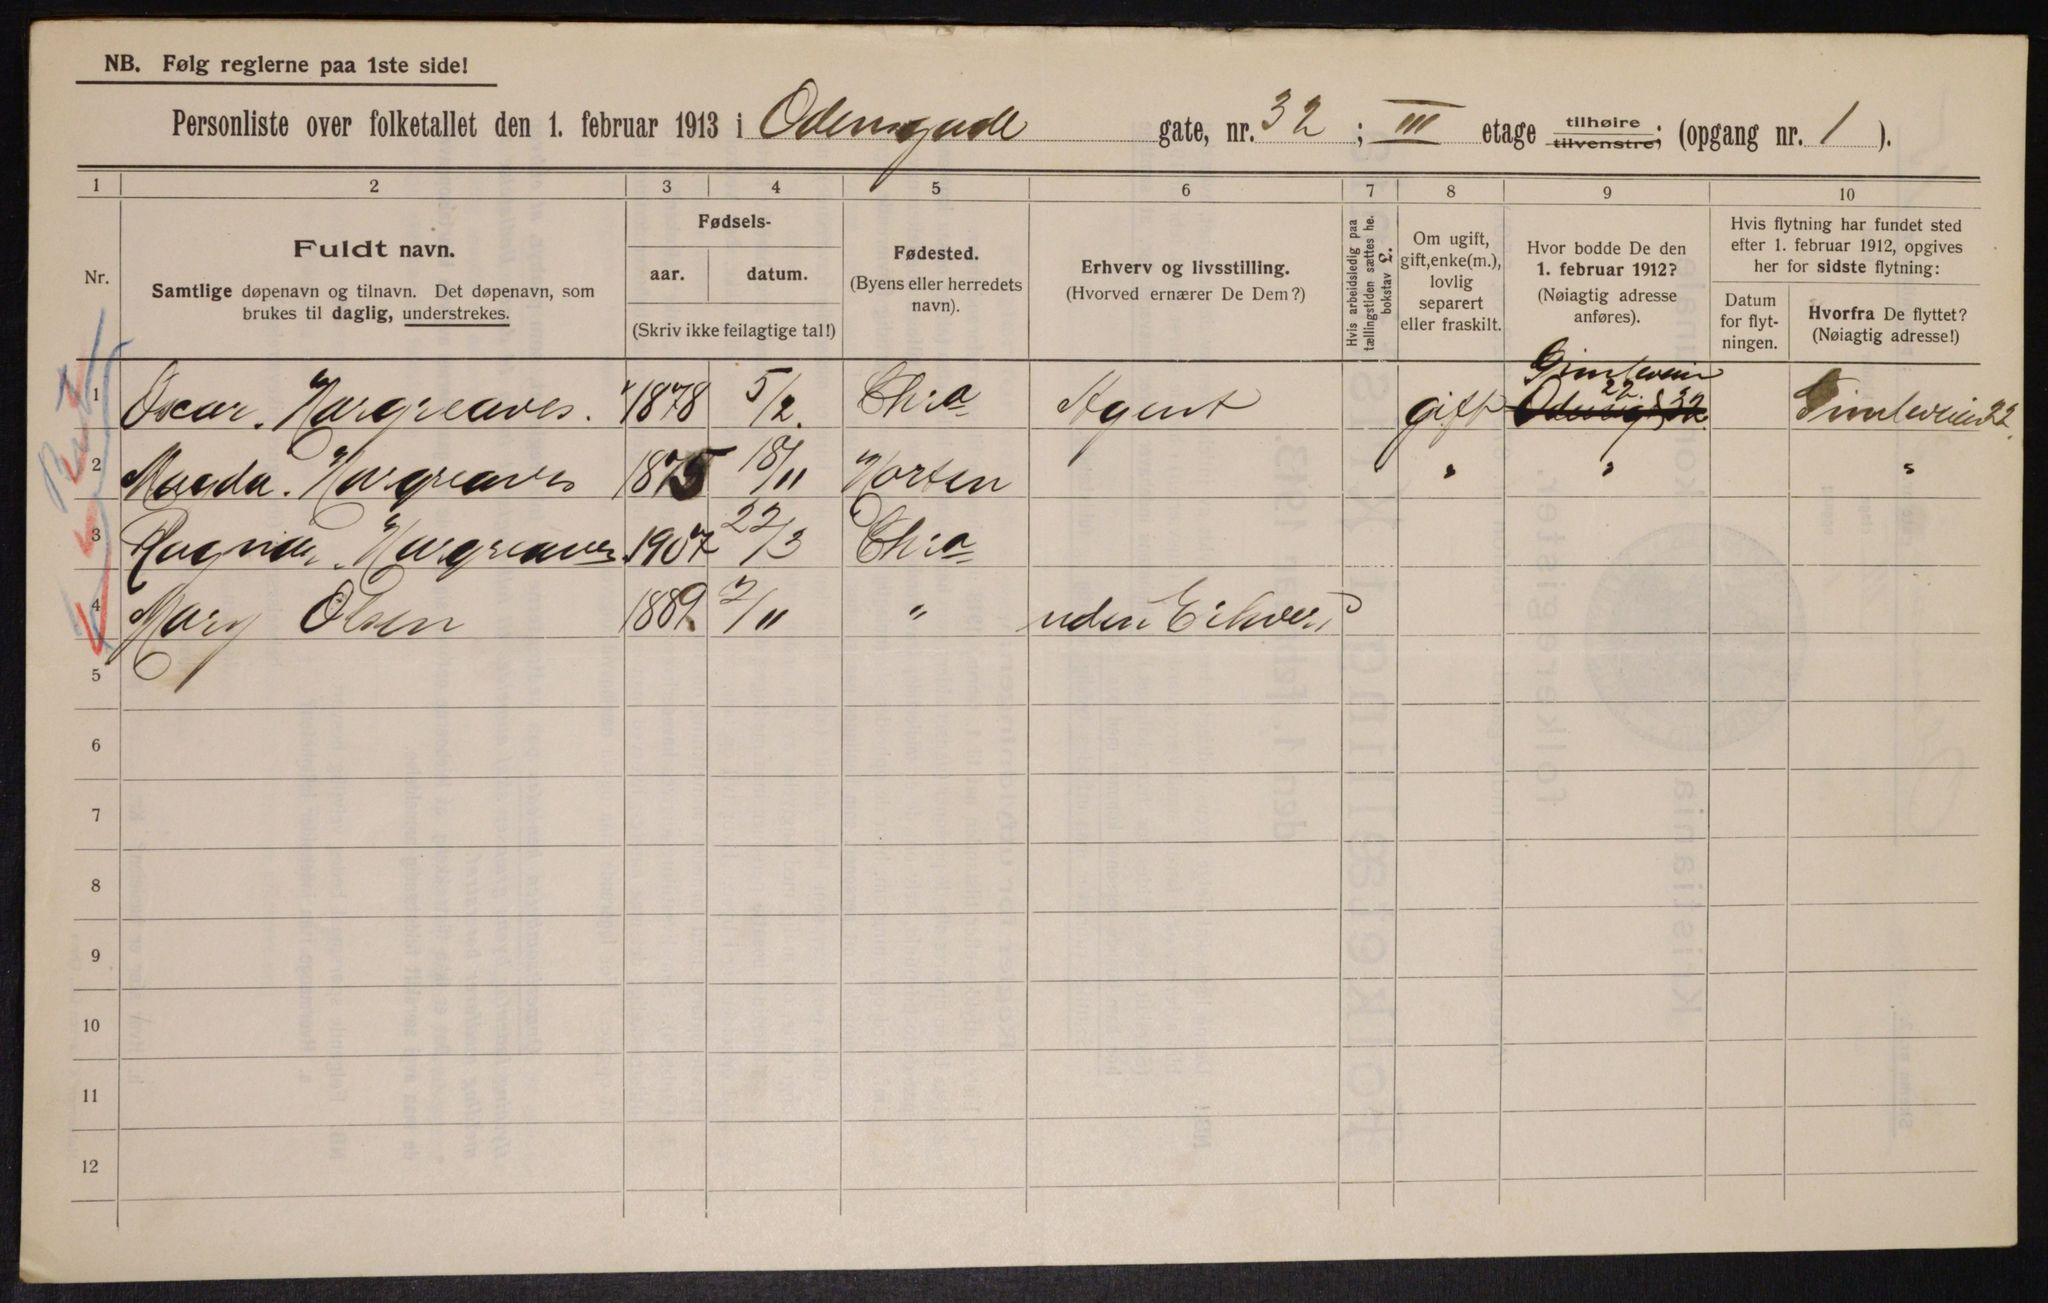 NB. Følg reglerne paa 1ste side!
Personliste over folketallet den 1. februar 1913 i Odensgade gate, nr. 32 ; III etage tilhøire tilvenstre; (opgang nr. 1 ).
1 2 3 4 5 6 7 8 9 10
Nr.
Fuldt navn.
Samtlige døpenavn og tilnavn. Det døpenavn, som
brukes til daglig, understrekes.
Fødsels-
aar. datum.
(Skriv ikke feilagtige tal!)
Fødested.
(Byens eller herredets
navn).
Erhverv og livsstilling.
(Hvorved ernærer De Dem?)
Hvis arbeidsledig paa
tællingstiden sættes he.
bokstav L.
Om ugift,
gift, enke(m.),
lovlig
separert
eller fraskilt.
Hvor bodde De den
1. februar 1912?
(Nøiagtig adresse
anføres).
Hvis flytning har fundet sted
efter 1. februar 1912, opgives
her for sidste flytning:
Datum
for flyt-
ningen.
Hvorfra De flyttet?
(Nøiagtig adresse!)
1 Oscar. Hargreaves. 1878 5/2. Chra Agent gift Gimleveien 22. Gimleveien 22.
2 Magda. Hargreaves 1875 18/11 Horten " " "
3 Ragna. Hargreaves. 1907 22/3 Chra
4 Mary Olsen 1889 2/11 " uden Erhverv
5
6
7
8
9
10
11
12